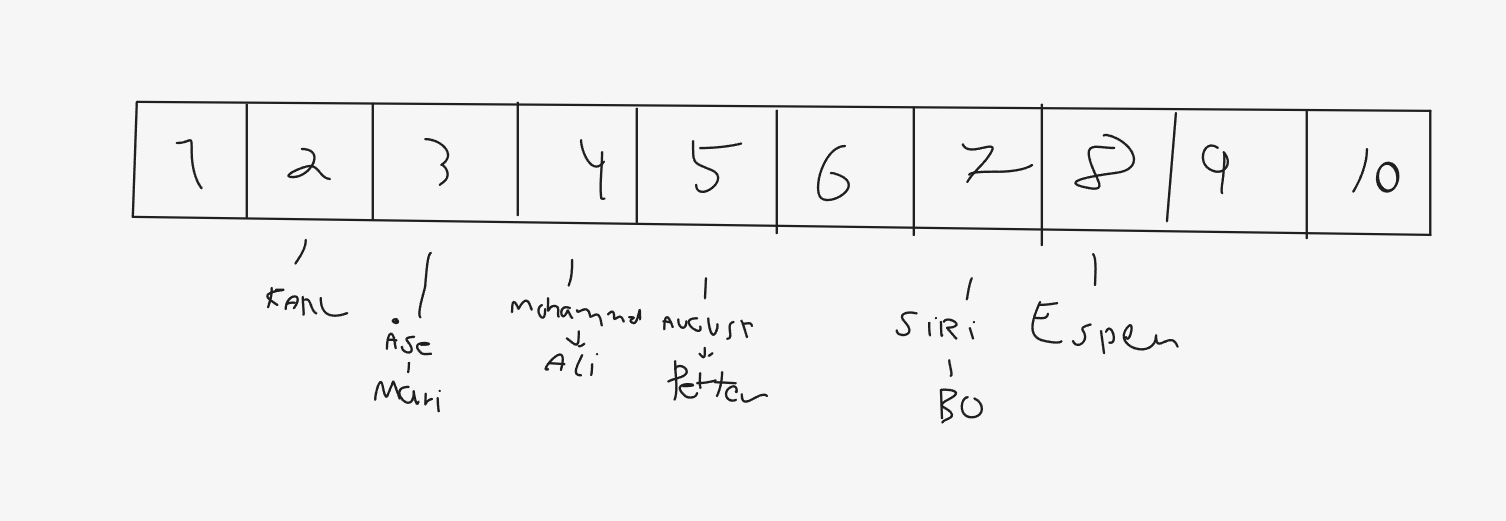 1 2 3 4 5 6 7 8 9 10
KARL
Åse
Mari
Mohammed
Ali
AUGUST
Petter
SIRi
BO
Espen